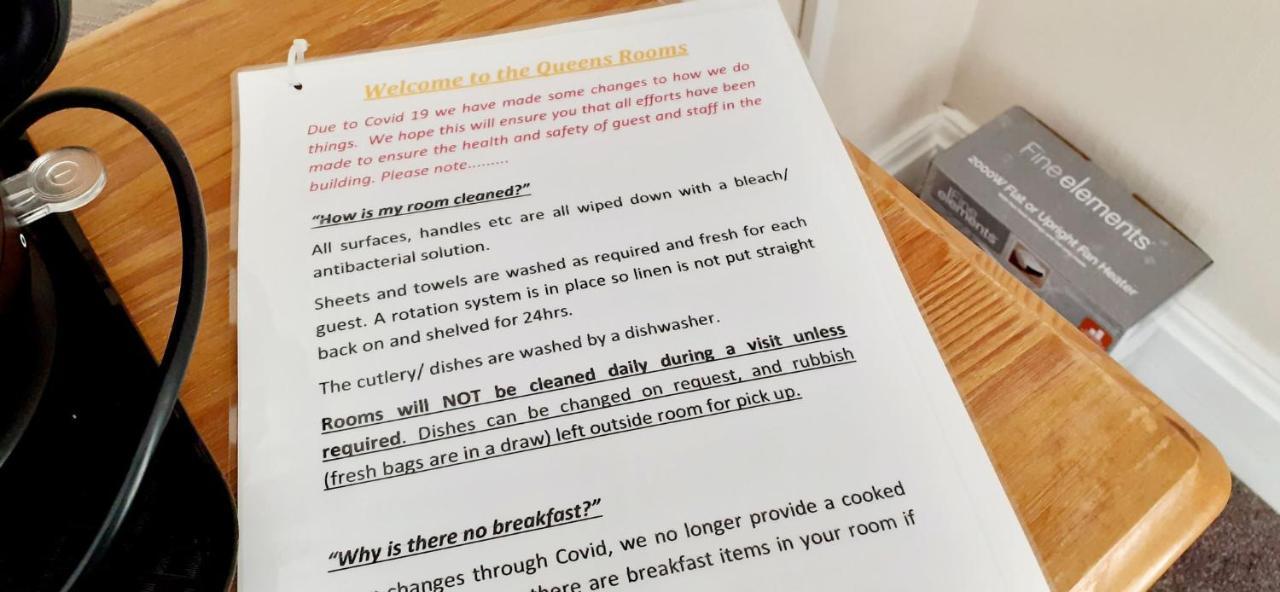 Welcome to the Queens Rooms
Due to Covid 19 we have made some changes to how we do
things. We hope this will ensure you that all efforts have been
made to ensure the health and safety of guest and staff in the
building. Please note.........
"How is my room cleaned?"
All surfaces, handles etc are all wiped down with a bleach/
antibacterial solution.
Sheets and towels are washed as required and fresh for each
guest. A rotation system is in place so linen is not put straight
back on and shelved for 24hrs.
The cutlery/ dishes are washed by a dishwasher.
Rooms will NOT be cleaned daily during a visit unless
required. Dishes can be changed on request, and rubbish
(fresh bags are in a draw) left outside room for pick up.
"Why is there no breakfast?"
changes through Covid, we no longer provide a cooked
there are breakfast items in your room if
Fine elements
2000W Flat or Upright Fan Heater
Fine
elements